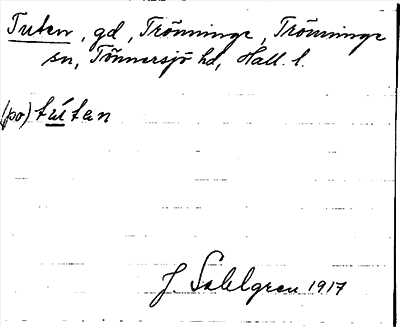 Tuten, gd, Trönninge, Trönninge
sn, Tönnersjö hd, Hall. l.
(po) tútan
J. Sahlgren 1917